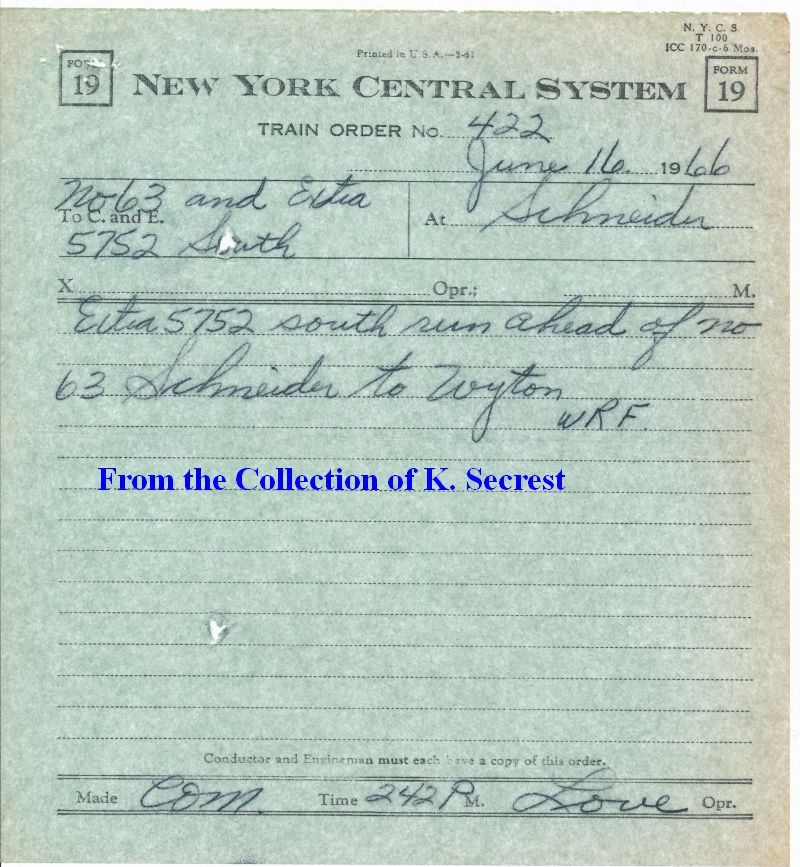 N. Y. C. S.
T 100
ICC 170-c-6 Mos.
Printed in U S.A.—5-61
FORM 19
NEW YORK CENTRAL SYSTEM
FORM 19
TRAIN ORDER No. 422
June 16 1966
No 63 and Extra
To C. and E.
5752 South
At Schneider
X Opr.; M.
Extra 5752 south run ahead of no
63 Schneider to Wyton
WRF.
From the Collection of K. Secrest
Conductor and Engineman must each have a copy of this order.
Made Com Time 242 P M. Love Opr.